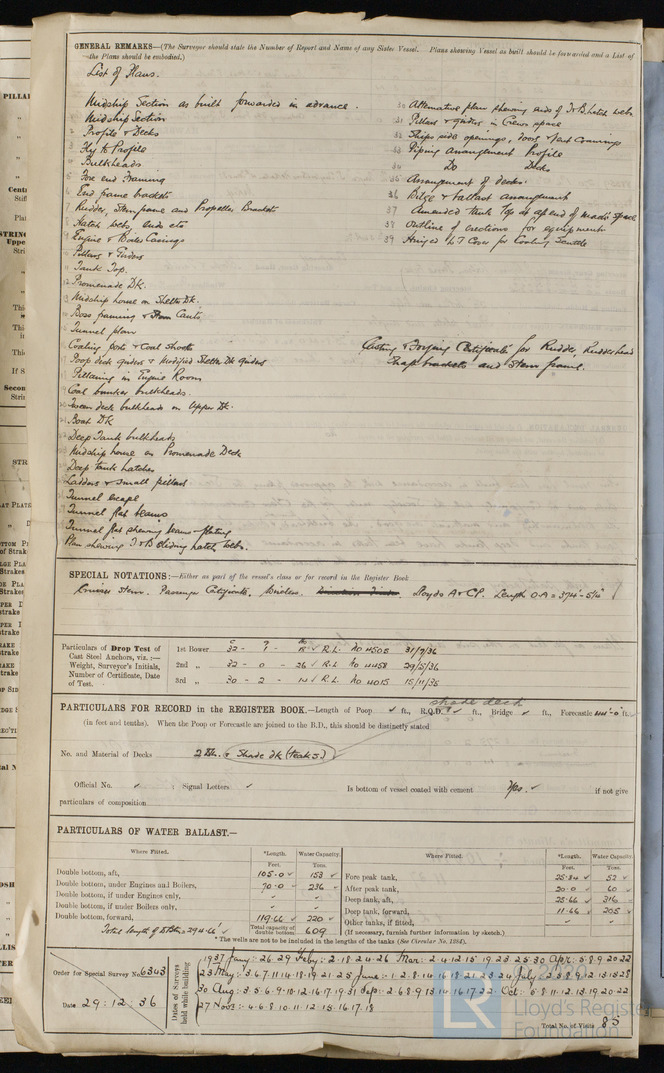 GENERAL REMARKS—(The Surveyor should state the Number of Report and Name of any Sister Vessel. Plans showing Vessel as built should be forwarded and a List of
the Plans should be embodied.)
List of Plans.
Midship Section as built forwarded in advance.
Midship Section
2 Profile & Decks
3 Key to Profile
4 Bulkheads
5 Fore end Framing
6 End frame brackets
7 Rudder, Sternframe and Propeller Brackets
8 Hatch webs, ends etc
9 Engine & Boiler Casings
Pillars & Girders
Tank Top.
12 Promenade Dk.
13 Midship house on Shelter Dk.
Boss framing & Stern Cants.
Tunnel plan
Coaling ports & Coal Shoots
Poop deck girders & Modified Shelter Dk girders
Pillaring in Engine Room
Coal bunker bulkheads.
Tween deck bulkheads on Upper Dk.
Boat DK
Deep Tank bulkheads
Midship house on Promenade Deck
Deep tank hatches
Ladders & small pillars
Tunnel escape
Tunnel flat beams
Tunnel flat shewing beams & plating
Plan shewing I & B sliding hatch webs.
30 Alternative plan shewing ends of I & B hatch webs
31 Pillars & girders in Crews space
32 Ships side openings, doors & tent
33 Piping arrangement Profile
34 Do Decks
35 Arrangement of decks.
36 Bilge & ballast arrangement
37 Amended tank top at ap end of space
38 Outline of erections for equipment
39 Hinged W.T. Cover for Coaling Scuttle
Casting & Forging Certificate for Rudder, Rudderhead
Shaft brackets and Stern frame.
SPECIAL NOTATIONS:—Either as part of the vessel's class or for record in the Register Book
Cruiser Stern. Passenger Certificate, Wireless. Lloyds A & CP. Length O.A = 374'-5¼"
Particulars of Drop Test of
Cast Steel Anchors, viz. :—
Weight, Surveyor's Initials,
Number of Certificate, Date
of Test.
1st Bower 32 - 1 - 15 ✓ R.L. No 4508 31/7/36
2nd „ 32 - 0 - 26 ✓ R.L No 4458 29/5/36
3rd „ 30 - 2 - 14 ✓ R.L No 4015 15/11/35
shade deck
PARTICULARS FOR RECORD in the REGISTER BOOK.—Length of Poop ✓ ft., R.Q.D. ✓ ft., Bridge ✓ ft., Forecastle 44'-0" ft.
(in feet and tenths). When the Poop or Forecastle are joined to the B.D., this should be distinctly stated
No. and Material of Decks 2 Stl. & Shade dk (Teak S)
Official No. ✓ ; Signal Letters ✓ Is bottom of vessel coated with cement Yes. ✓ if not give
particulars of composition
PARTICULARS OF WATER BALLAST.—
Where Fitted. *Length. Water Capacity. Where Fitted. *Length. Water Capacity.
Feet. Tons. Feet. Tons.
Double bottom, aft, 105.0 ✓ 153 ✓ Fore peak tank, 25.84 ✓ 52 ✓
Double bottom, under Engines and Boilers, 70.0 ✓ 236 ✓ After peak tank, 20.0 ✓ 60 ✓
Double bottom, if under Engines only, Deep tank, aft, 25.66 ✓ 316 ✓
Double bottom, if under Boilers only, Deep tank, forward, 11.66 ✓ 205 ✓
Double bottom, forward, 119.66 ✓ 220 ✓ Other tanks, if fitted,
Total length of D Btm = 294.66' ✓ Total capacity of double bottom 609 (If necessary, furnish further information by sketch.)
* The wells are not to be included in the lengths of the tanks (See Circular No. 1284).
Order for Special Survey No. 6343
Date 29:12:36
Dates of Surveys held while building
1937 Jany: 26 29 Feby: 2 18 24 26 Mar: 2 4 12 15 19 23 25 30 Apr: 5 8 9 20 22
23 May: 3 6 7 11 14 18 19 21 25 June: 1 2 8 14 16 18 21 23 24 July 2 5 8 9 12 13 15 28
30 Aug: 3 5 6 9 10 12 16 17 19 31 Sep: 2 6 8 9 13 14 16 17 22 Oct: 5 8 11 12 13 19 20 22
27 Nov: 4 6 8 10 11 12 15 16 17 18
Total No. of Visits 85
LR
Lloyd's Register
Foundation